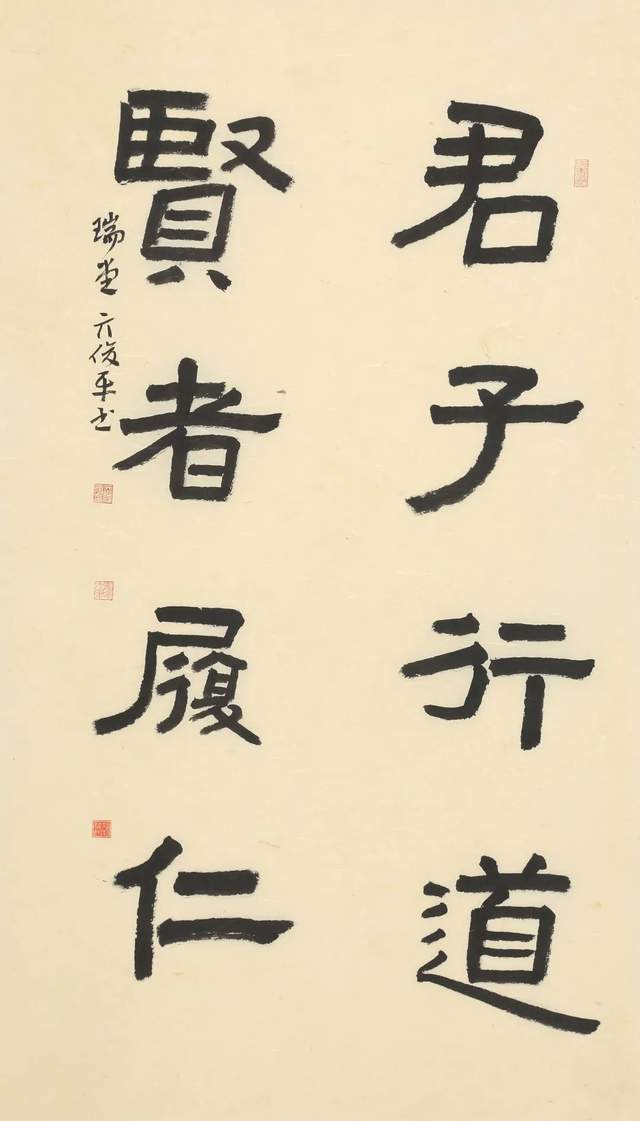 君子行道
賢者履仁
瑞堂 亓俊平书